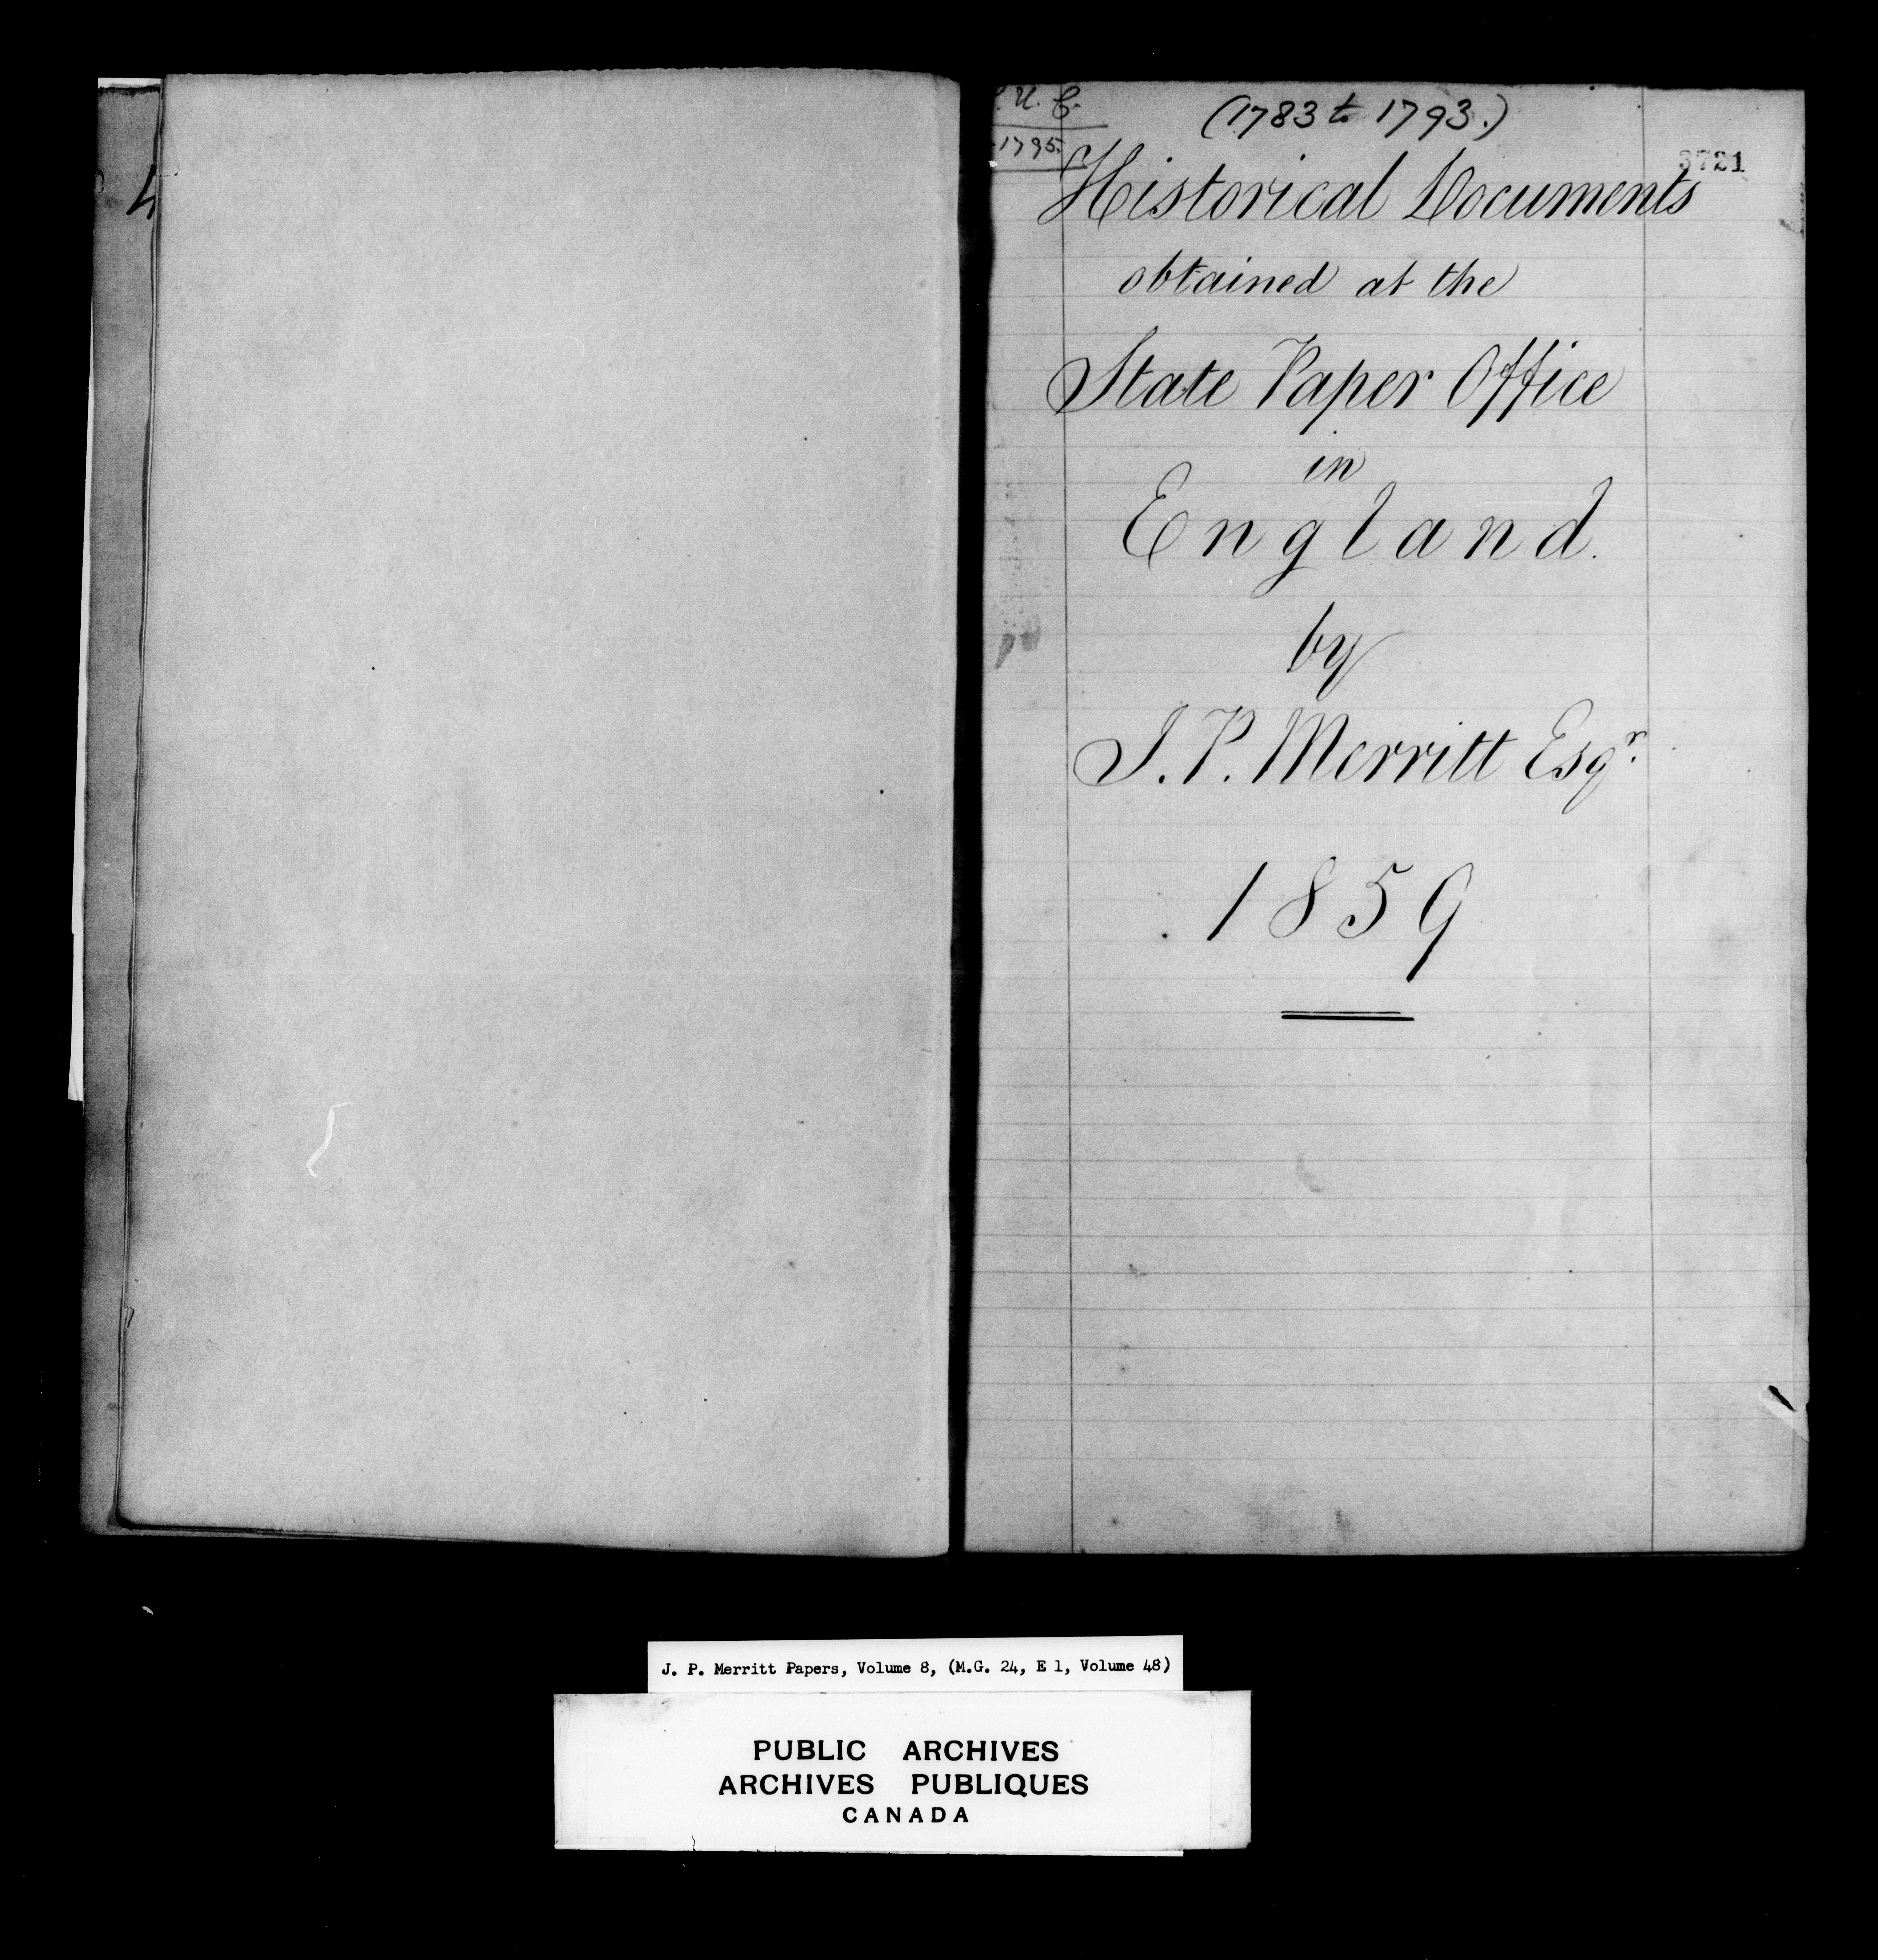 4
U. C.
1795.
(1783 to 1793.)
3721
Historical Documents
obtained at the
State Paper Office
in
England.
by
J. P. Merritt Esqr.
1859
J. P. Merritt Papers, Volume 8, (M.G. 24, E 1, Volume 48)
PUBLIC ARCHIVES
ARCHIVES PUBLIQUES
CANADA